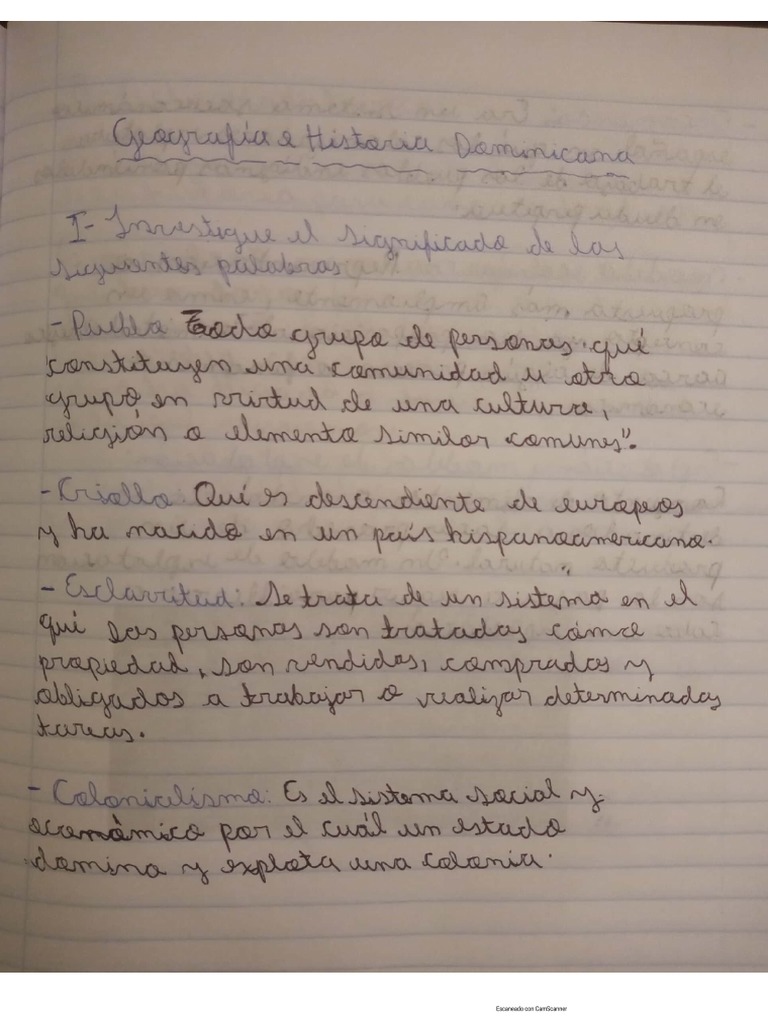 Geografía e Historia Dominicana
I- Investigue el significado de las
siguientes palabras
- Pueblo Todo grupo de personas qué
constituyen una comunidad u otro
grupo en virtud de una cultura,
religión o elemento similar comunes".
- Criollo Qué es descendiente de europeos
y ha nacido en un país hispanoamericano.
- Esclavitud: Se trata de un sistema en el
qué las personas son tratadas cómo
propiedad, son vendidos, comprados y
obligados a trabajar o realizar determinadas
tareas.
- Colonialismo: Es el sistema social y
económico por el cuál un estado
domina y explota una colonia.
Escaneado con CamScanner